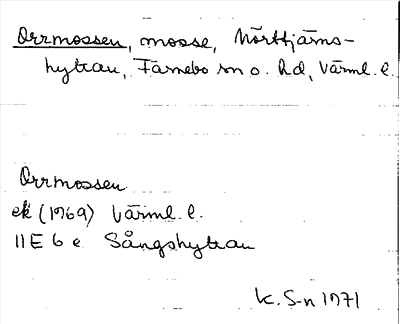 Orrmossen, mosse, Nörttjärns-
hyttan, Färnebo sn o. hd, Värml. l.
Orrmossen
ek (1969) Värml. l.
11 E 6 e Sångshyttan
K. S-n 1971